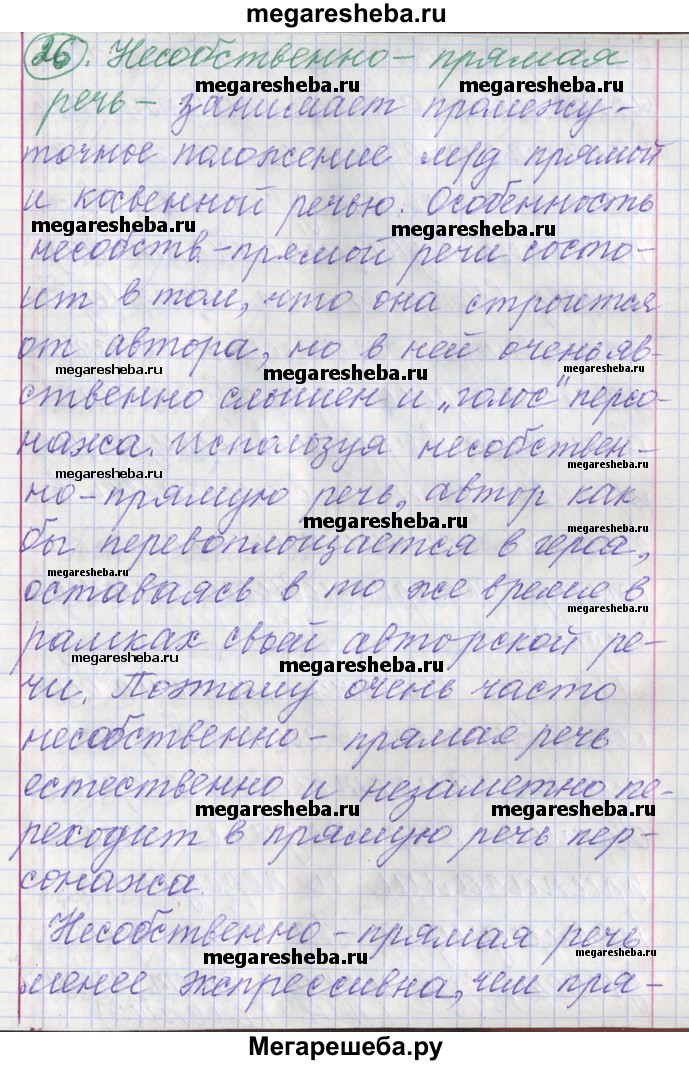 megaresheba.ru
26. Несобственно - прямая
megaresheba.ru megaresheba.ru
речь - занимает промежу-
точное положение м/д прямой
и косвенной речью. Особенность
megaresheba.ru megaresheba.ru
несобств.-прямой речи состо-
ит в том, что она строится
от автора, но в ней очень яв-
megaresheba.ru megaresheba.ru megaresheba.ru
ственно слышен и „голос" персо-
нажа. Используя несобствен-
megaresheba.ru megaresheba.ru
но-прямую речь, автор как
megaresheba.ru
бы перевоплощается в героя,
megaresheba.ru
оставаясь в то же время в
megaresheba.ru
рамках своей авторской ре-
megaresheba.ru megaresheba.ru
чи. Поэтому очень часто
несобственно - прямая речь
естественно и незаметно пе-
megaresheba.ru megaresheba.ru
реходит в прямую речь пер-
сонажа.
Несобственно - прямая речь
менее экспрессивна, чем пря-
Мегарешеба.ру